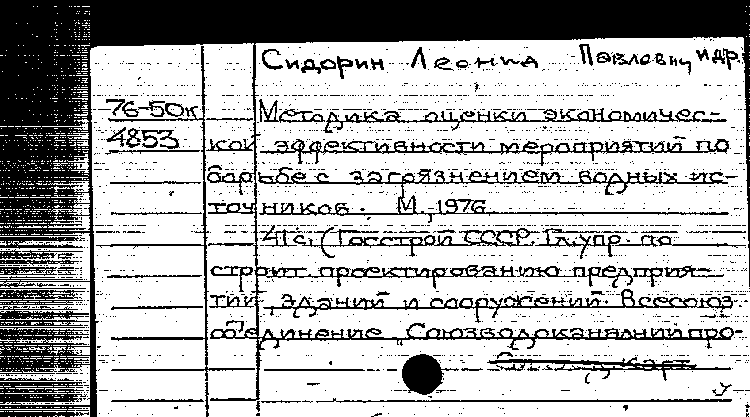 Сидорин Леонид Павлович и др.
76-50к Методика оценки экономичес-
4853 кой эффективности мероприятий по
борьбе с загрязнением водных ис-
точников. М., 1976
41с. (Госстрой СССР. Гл. упр. по
строит. проектированию предприя-
тий, зданий и сооружений. Всесоюз.
объединение "Союзводоканалниипро-